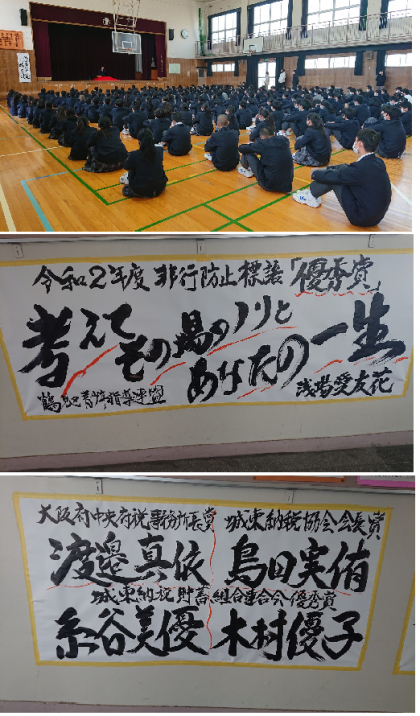 令和2年度 非行防止標語「優秀賞」
考えて その場のノリと あなたの一生
浅場愛友花
大阪府中央府税事務所長賞 城東納税協会会長賞
渡邉真依 島田実侑
城東納税貯蓄組合連合会優秀賞
糸谷美優 木村優子